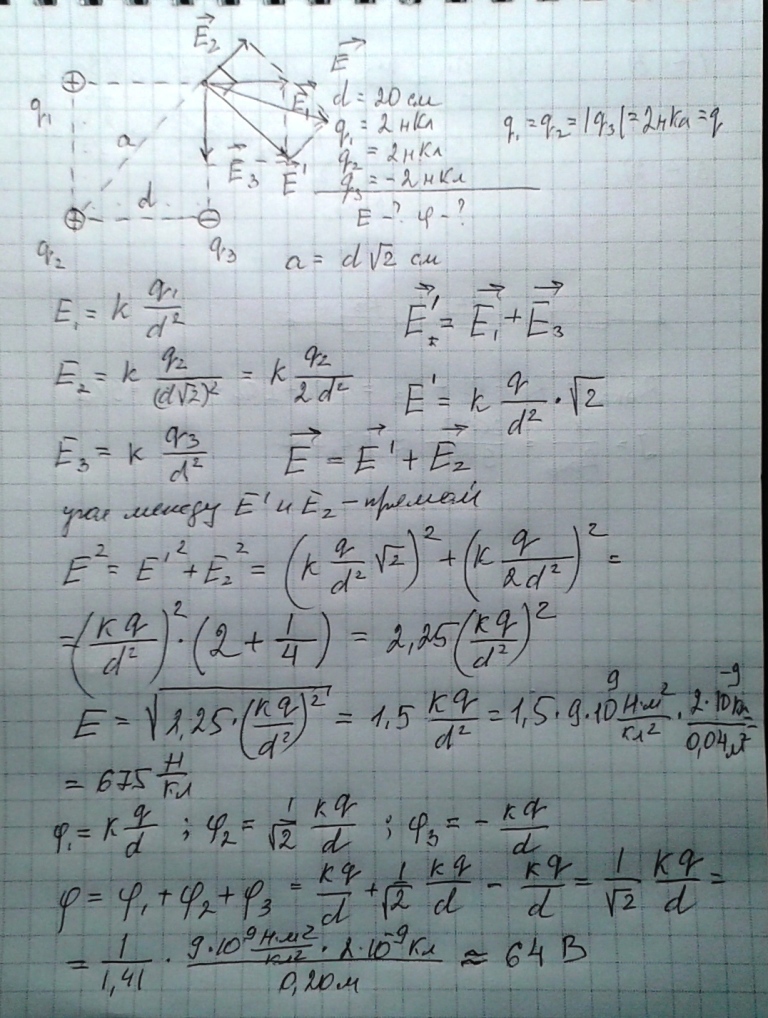 E₂ E
q₁ E₁ d = 20 см
q₁ = 2 нКл q₁ = q₂ = |q₃| = 2 нКл = q
a q₂ = 2 нКл
E₃ E' q₃ = -2 нКл
d E - ? φ - ?
q₂ q₃ a = d√2 см
E₁ = k q₁/d² E' = E₁ + E₃
E₂ = k q₂/(d√2)² = k q₂/2d² E' = k q/d² · √2
E₃ = k q₃/d² E = E' + E₂
угол между E' и E₂ - прямой
E² = E'² + E₂² = (k q/d² √2)² + (k q/2d²)² =
= (kq/d²)² · (2 + 1/4) = 2,25 (kq/d²)²
E = √2,25 · (kq/d²)² = 1,5 kq/d² = 1,5 · 9 · 10⁹ Н·м²/кл² · 2·10⁻⁹ Кл/0,04 м² =
= 675 Н/Кл
φ₁ = k q/d ; φ₂ = 1/√2 kq/d ; φ₃ = - kq/d
φ = φ₁ + φ₂ + φ₃ = kq/d + 1/√2 kq/d - kq/d = 1/√2 kq/d =
= 1/1,41 · 9·10⁹ Н·м²/кл² · 2·10⁻⁹ Кл/0,20 м ≈ 64 В